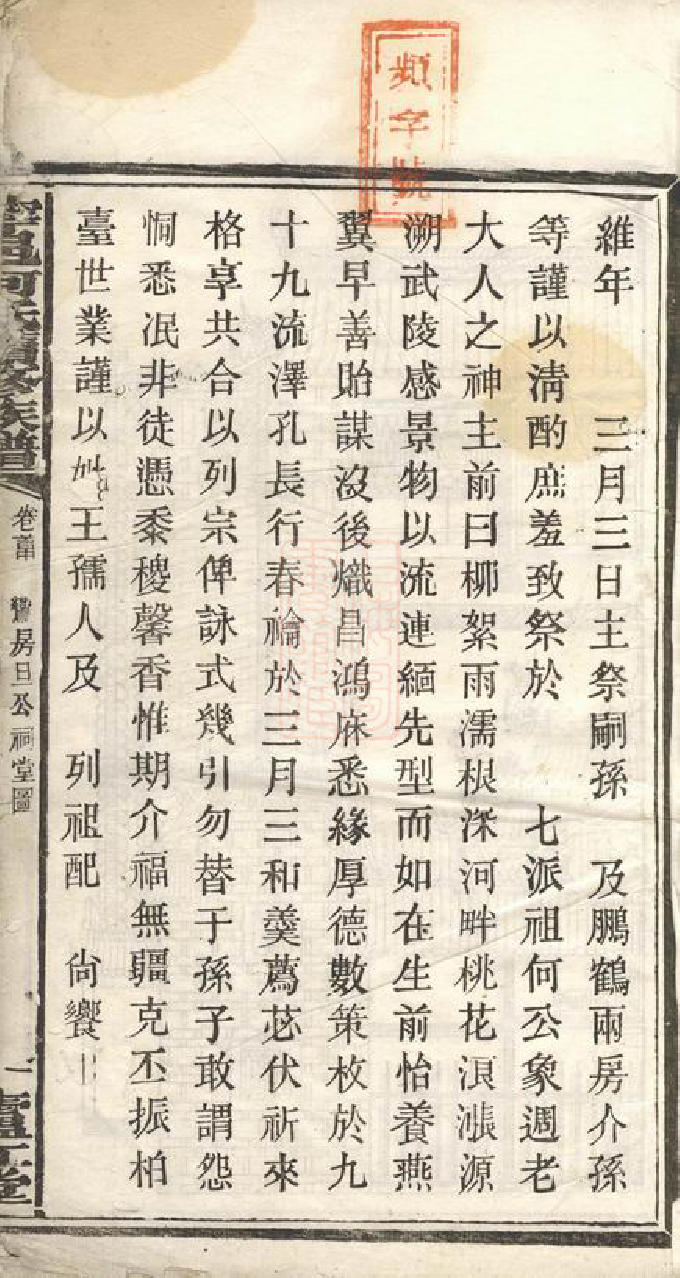 維年　三月三日主祭嗣孫　及鵬鶴兩房介孫
等謹以淸酌庶羞致祭於　七派祖何公象週老
大人之神主前曰柳絮雨濡根深河畔桃花浪漲源
溯武陵感景物以流連緬先型而如在生前怡養燕
翼早善貽謀沒後熾昌鴻庥悉緣厚德數策枚於九
十九流澤孔長行春禴於三月三和羹薦苾伏祈來
格享共合以列宗俾詠式幾引勿替于孫子敢謂怨
恫悉泯非徒憑黍稷馨香惟期介福無疆克丕振柏
臺世業謹以　王孺人及　列祖配　尙饗
何氏續修族譜
卷首　房日公祠堂圖
一
頻字號